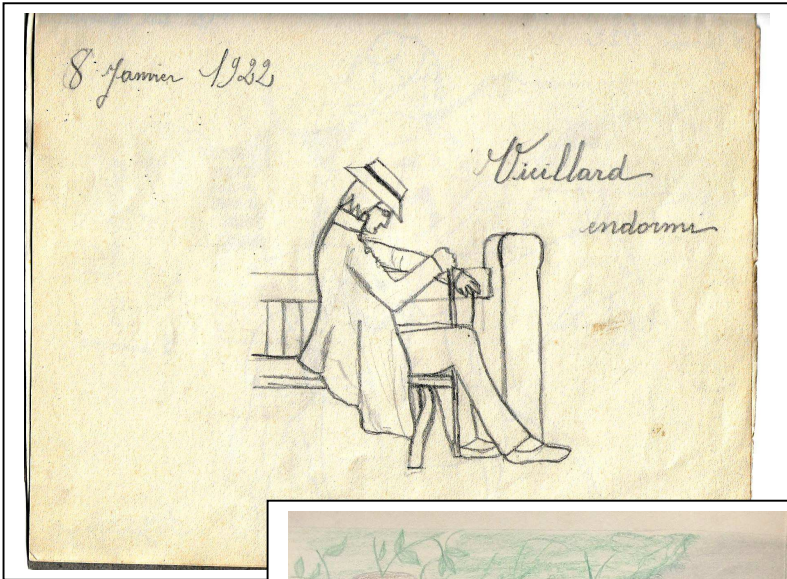 8 Janvier 1922
Vieillard
endormi